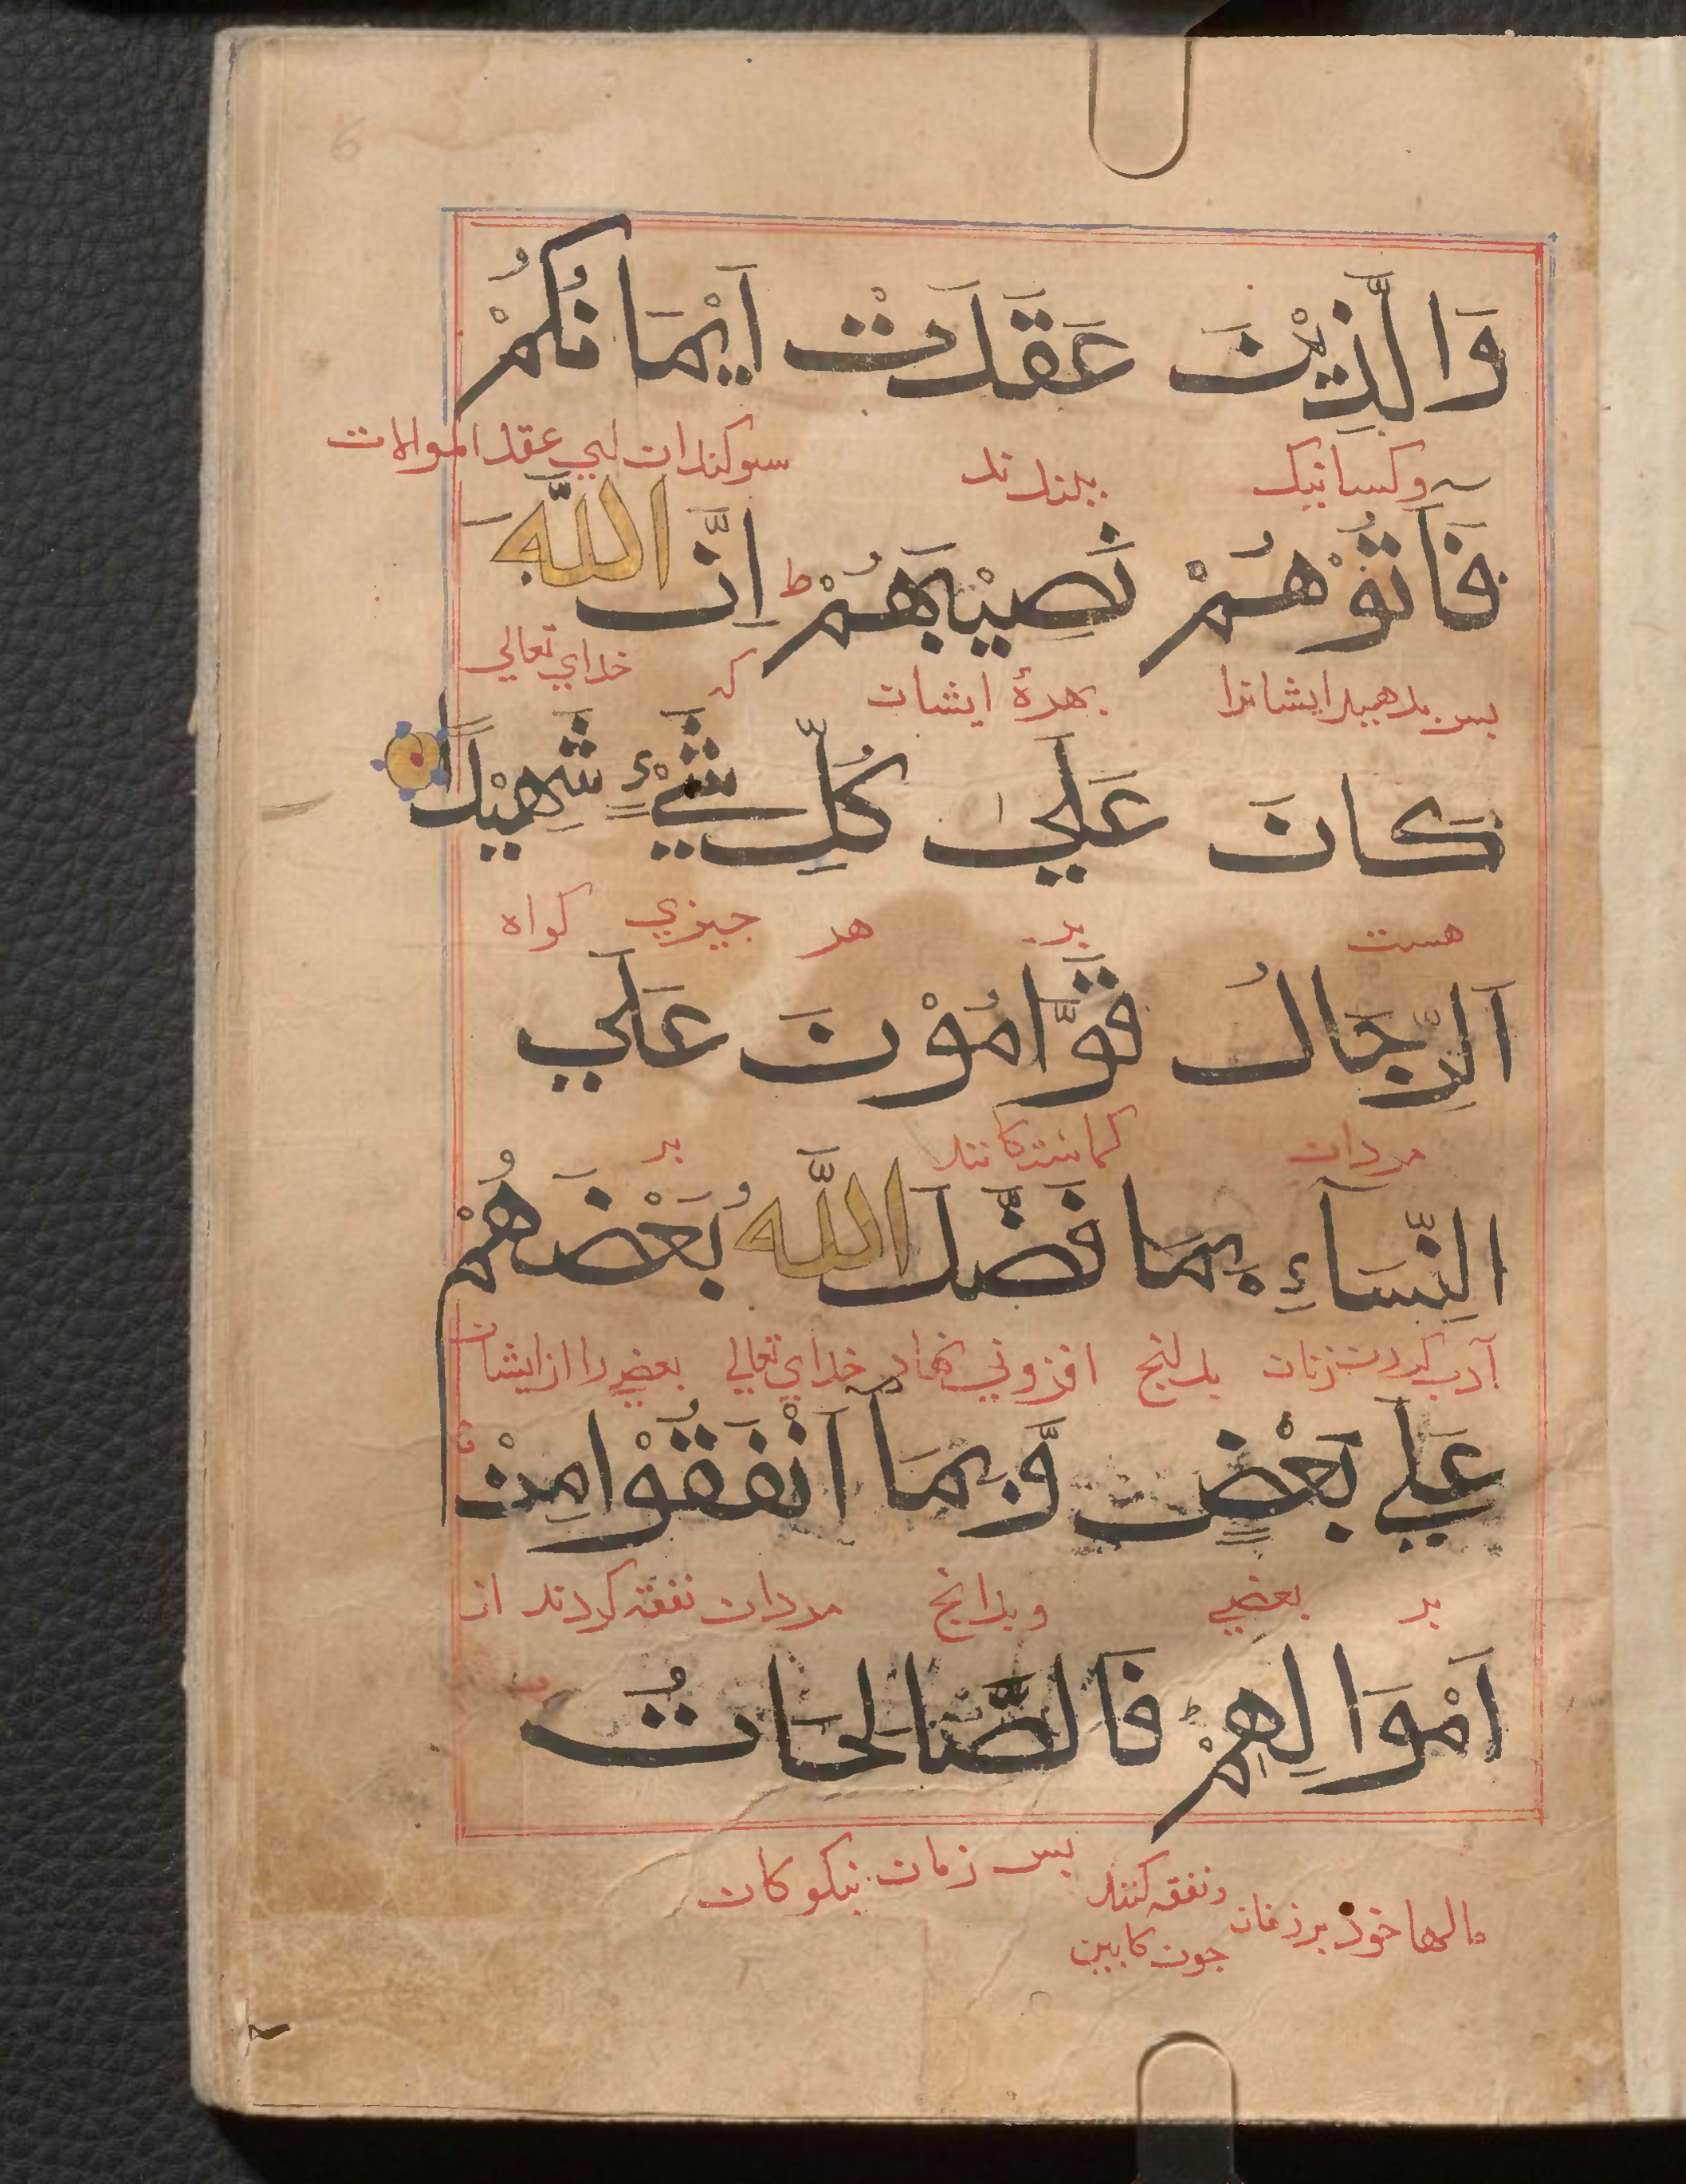 وَالَّذِيْنَ عَقَدَتْ اَيْمَانُكُمْ
وكسانيك ببندند سوكندان اي عقد الموالات
فَآتُوْهُمْ نَصِيْبَهُمْ ط اِنَّ اللّٰهَ
بس بدهيد ايشانرا بهرهٔ ايشان كه خداي تعالي
كَانَ عَلٰي كُلِّ شَيْءٍ شَهِيْدًا
هست بر هر چيزي كواه
اَلرِّجَالُ قَوَّامُوْنَ عَلَي
مردان كماشتكانند بر
النِّسَآءِ بِمَا فَضَّلَ اللّٰهُ بَعْضَهُمْ
آدب كردن زنان بدانج افزوني نهاد خداي تعالي بعضي را از ايشان
عَلَي بَعْضٍ وَّبِمَآ اَنْفَقُوْا مِنْ
بر بعضي وبدانج مردان نفقه كردند از
اَمْوَالِهِمْ ط فَالصَّالِحَاتُ
مالها خود بر زنان ونفقه كنند بس زنان نيكوكان
جون كابين